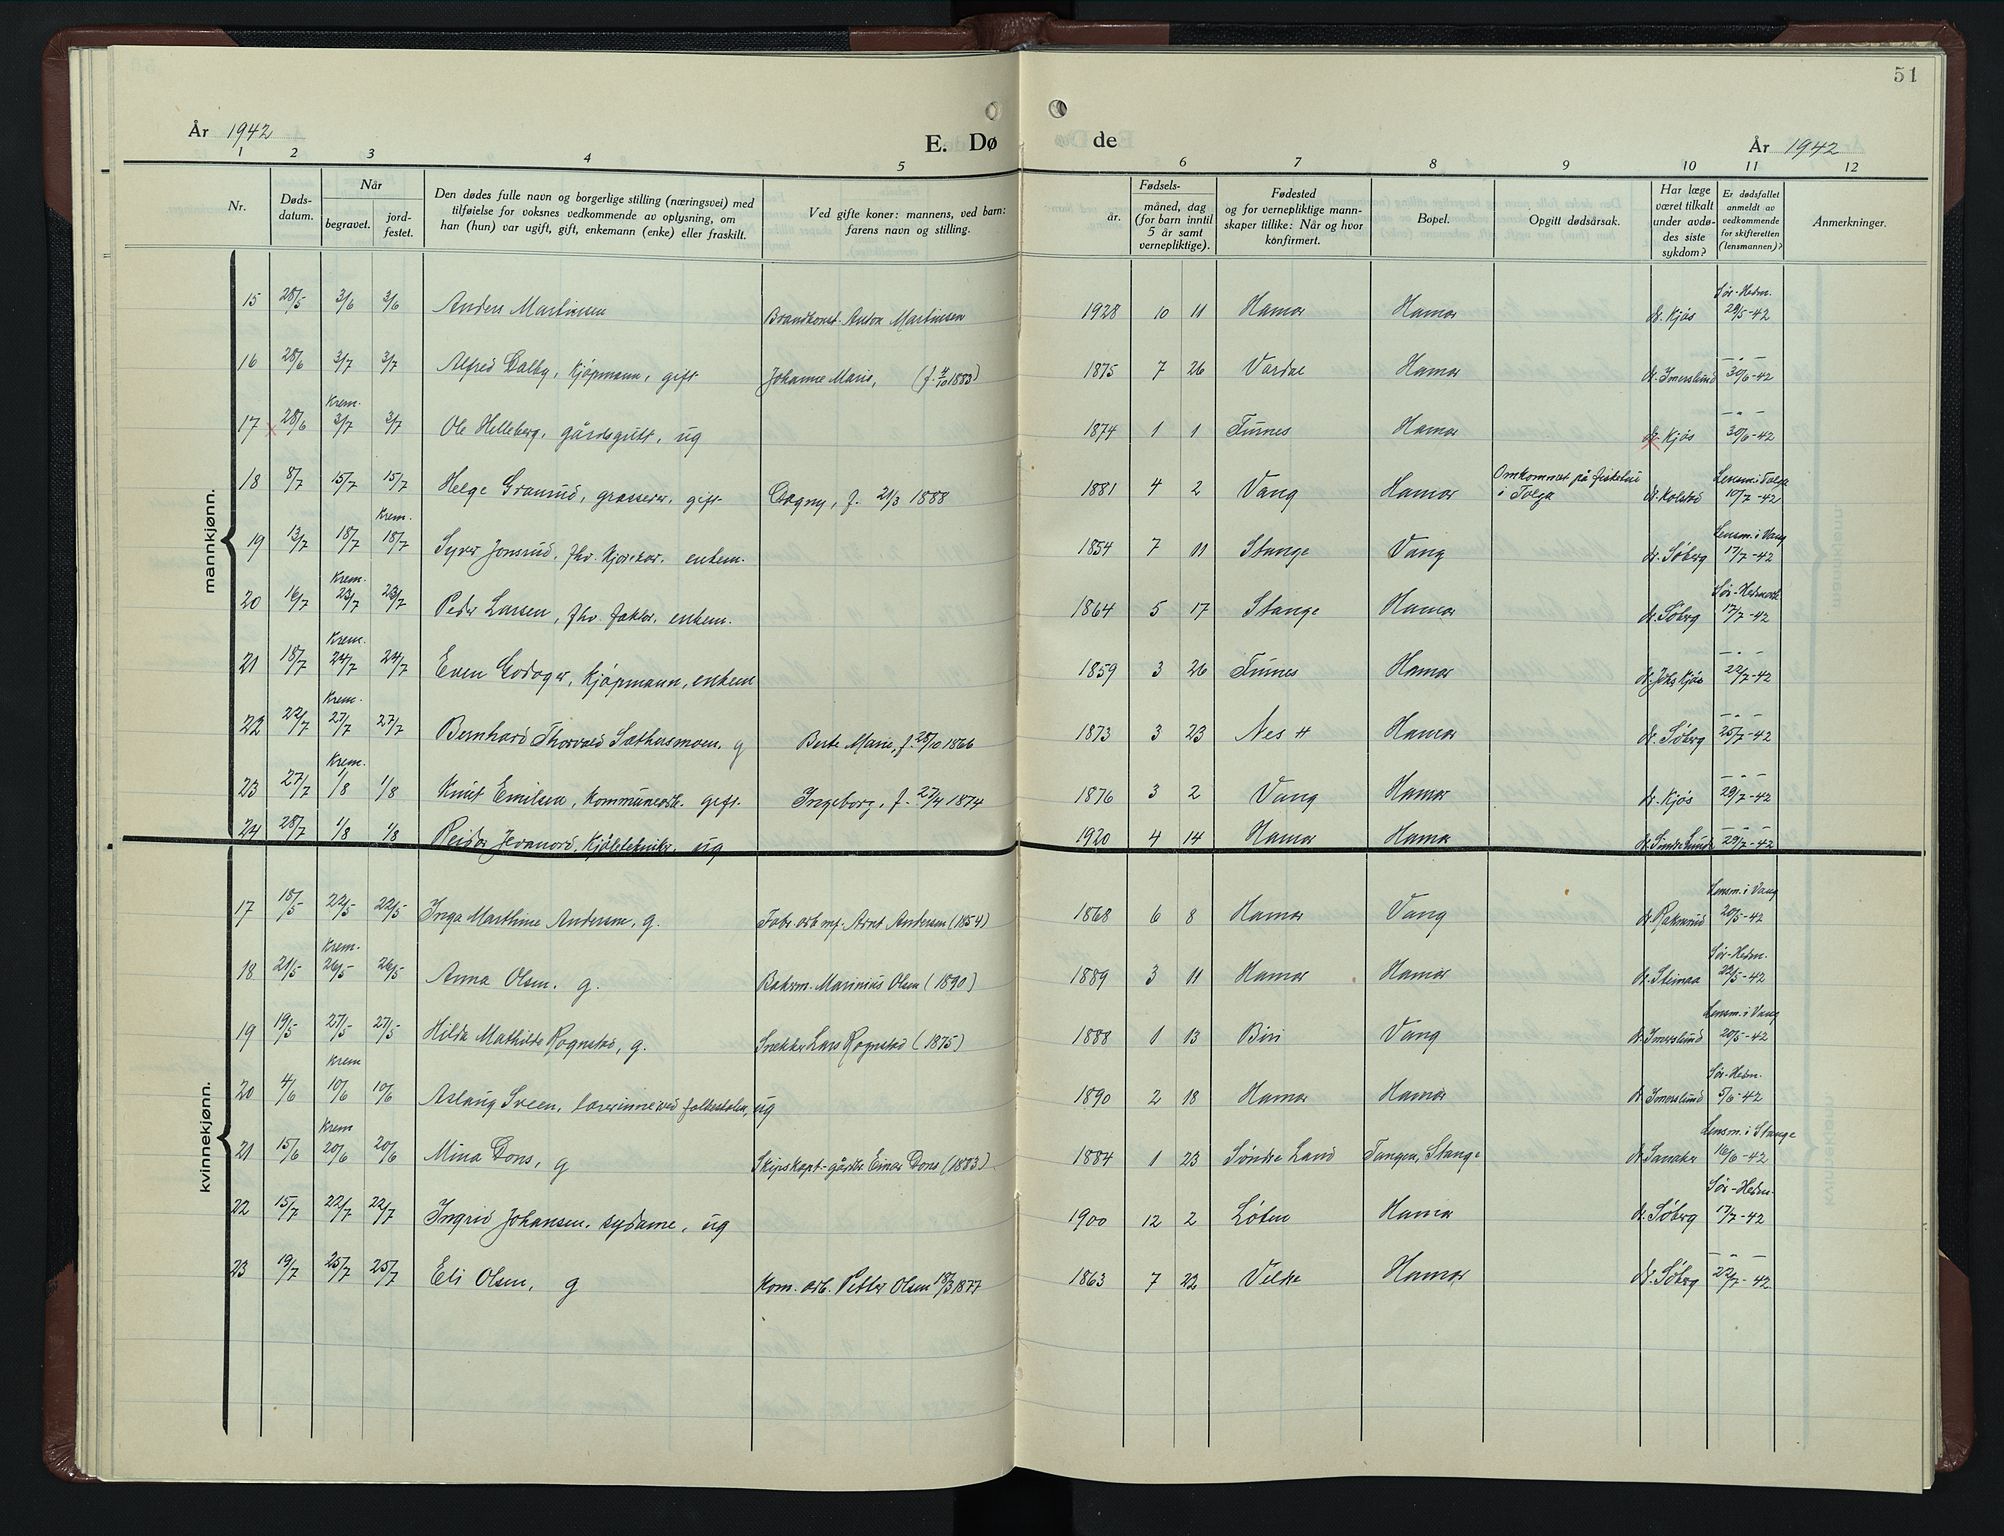 51
År 1942
E. Dø
de
År 1942
1 2 3 4 5 6 7 8 9 10 11 12
Nr.
Døds-
datum.
Når
begravet.
jord-
festet.
Den dødes fulle navn og borgerlige stilling (næringsvei) med
tilføielse for voksnes vedkommende av oplysning, om
han (hun) var ugift, gift, enkemann (enke) eller fraskilt.
Ved gifte koner: mannens, ved barn:
farens navn og stilling.
Fødsels-
år.
måned, dag
(for barn inntil
5 år samt
vernepliktige).
Fødested
og for vernepliktige mann-
skaper tillike: Når og hvor
konfirmert.
Bopel.
Opgitt dødsårsak.
Har læge
været tilkalt
under avdø-
des siste
sykdom?
Er dødsfallet
anmeldt av
vedkommende
for skifteretten
(lensmannen)?
Anmerkninger.
mannkjønn.
15 28/5 3/6 3/6 Anders Martinsen Brandkonst. Anton Martinsen 1928 10 11 Hamar Hamar dr. Kjøs Sør-Hedm. 29/5-42
16 28/6 3/7 3/7 Alfred Dalby, Kjøpmann, gift Johanne Marie, (f. 4/10 1883) 1875 7 26 Vardal Hamar dr. Imerslund —"— 30/6-42
17 28/6 Krem. 3/7 3/7 Ole Helleberg, gårdsgutt, ug 1874 1 1 Furnes Hamar dr. Kjøs —"— 30/6-42
18 8/7 15/7 15/7 Helge Granrud, grosserer, gift Dagny, f. 21/3 1888 1881 4 2 Vang Hamar Omkommet på fisketur i Tolga dr. Kolstad Lensm. i Tolga 10/7-42
19 13/7 18/7 Krem. 18/7 Syver Jonsrud, fhv. kjørekar, enkem. 1854 7 11 Stange Vang dr. Søberg Lensm. i Vang 17/7-42
20 16/7 Krem. 23/7 23/7 Peder Larsen, fhv. faktor, enkem. 1864 5 17 Stange Hamar dr. Søberg Sør-Hedmark 17/7-42
21 18/7 Krem. 24/7 24/7 Even Godager, Kjøpmann, enkem 1859 3 26 Furnes Hamar dr. Johs Kjøs —"— 22/7-42
22 22/7 Krem. 27/7 27/7 Bernhard Thorvald Sæthusmoen, g Berte Marie, f. 28/10 1866 1873 3 23 Nes H Hamar dr. Søberg —"— 25/7-42
23 27/7 Krem. 1/8 1/8 Knut Emilsen, kommunearb. gift. Ingeborg, f. 27/4 1874 1876 3 2 Vang Hamar dr. Kjøs —"— 29/7-42
24 28/7 1/8 1/8 Reidar Jevanord, Kjøletekniker, ug 1920 4 14 Hamar Hamar dr. Sindre Lunde —"— 29/7-42
kvinnekjønn.
17 18/5 22/5 22/5 Inga Marthine Andersen, g. Fabr. arb mf. Arnt Andersen (1854) 1868 6 8 Hamar Vang dr. Raknerud Lensm. i Vang 20/5-42
18 21/5 Krem. 26/5 26/5 Anna Olsen, g. Bakerm. Marinius Olsen (1890) 1889 3 11 Hamar Hamar dr. Steinaa Sør-Hedm. 22/5-42
19 19/5 27/5 27/5 Hilda Mathilde Rognstad, g. Snekker Lars Rognstad (1875) 1888 1 13 Biri Vang dr. Imerslund Lensm. i Vang 20/5-42
20 4/6 Krem 10/6 10/6 Aslaug Sveen, lærerinne ved folkeskolen, ug 1890 2 18 Hamar Hamar dr. Imerslund Sør-Hedm. 5/6-42
21 15/6 Krem 20/6 20/6 Mina Dons, g Skipskapt-gårdbr Einar Dons (1883) 1884 1 23 Søndre Land Tangen, Stange dr. Sanaker Lensm. i Stange 16/6-42
22 15/7 22/7 22/7 Ingrid Johansen, sydame, ug 1900 12 2 Løten Hamar dr. Søberg Sør-Hedm. 17/7-42
23 19/7 25/7 25/7 Eli Olsen, g Kom. arb. Petter Olsen 18/3 1877 1863 7 22 Veldre Hamar dr. Søberg —"— 22/7-42